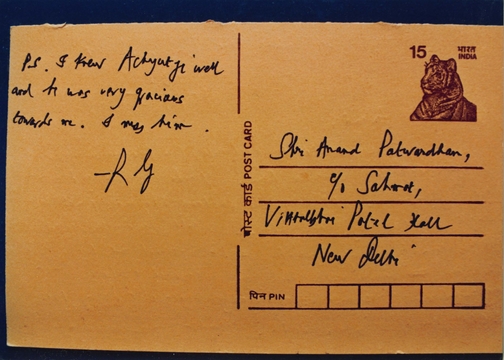 Ps. I knew Achyutji well
and he was very gracious
towards me. I miss him.
—RG
15 भारत
INDIA
पोस्ट कार्ड POST CARD
Shri Anand Patwardhan,
c/o Sahmat,
Vithalbhai Patel Hall
New Delhi
पिन PIN